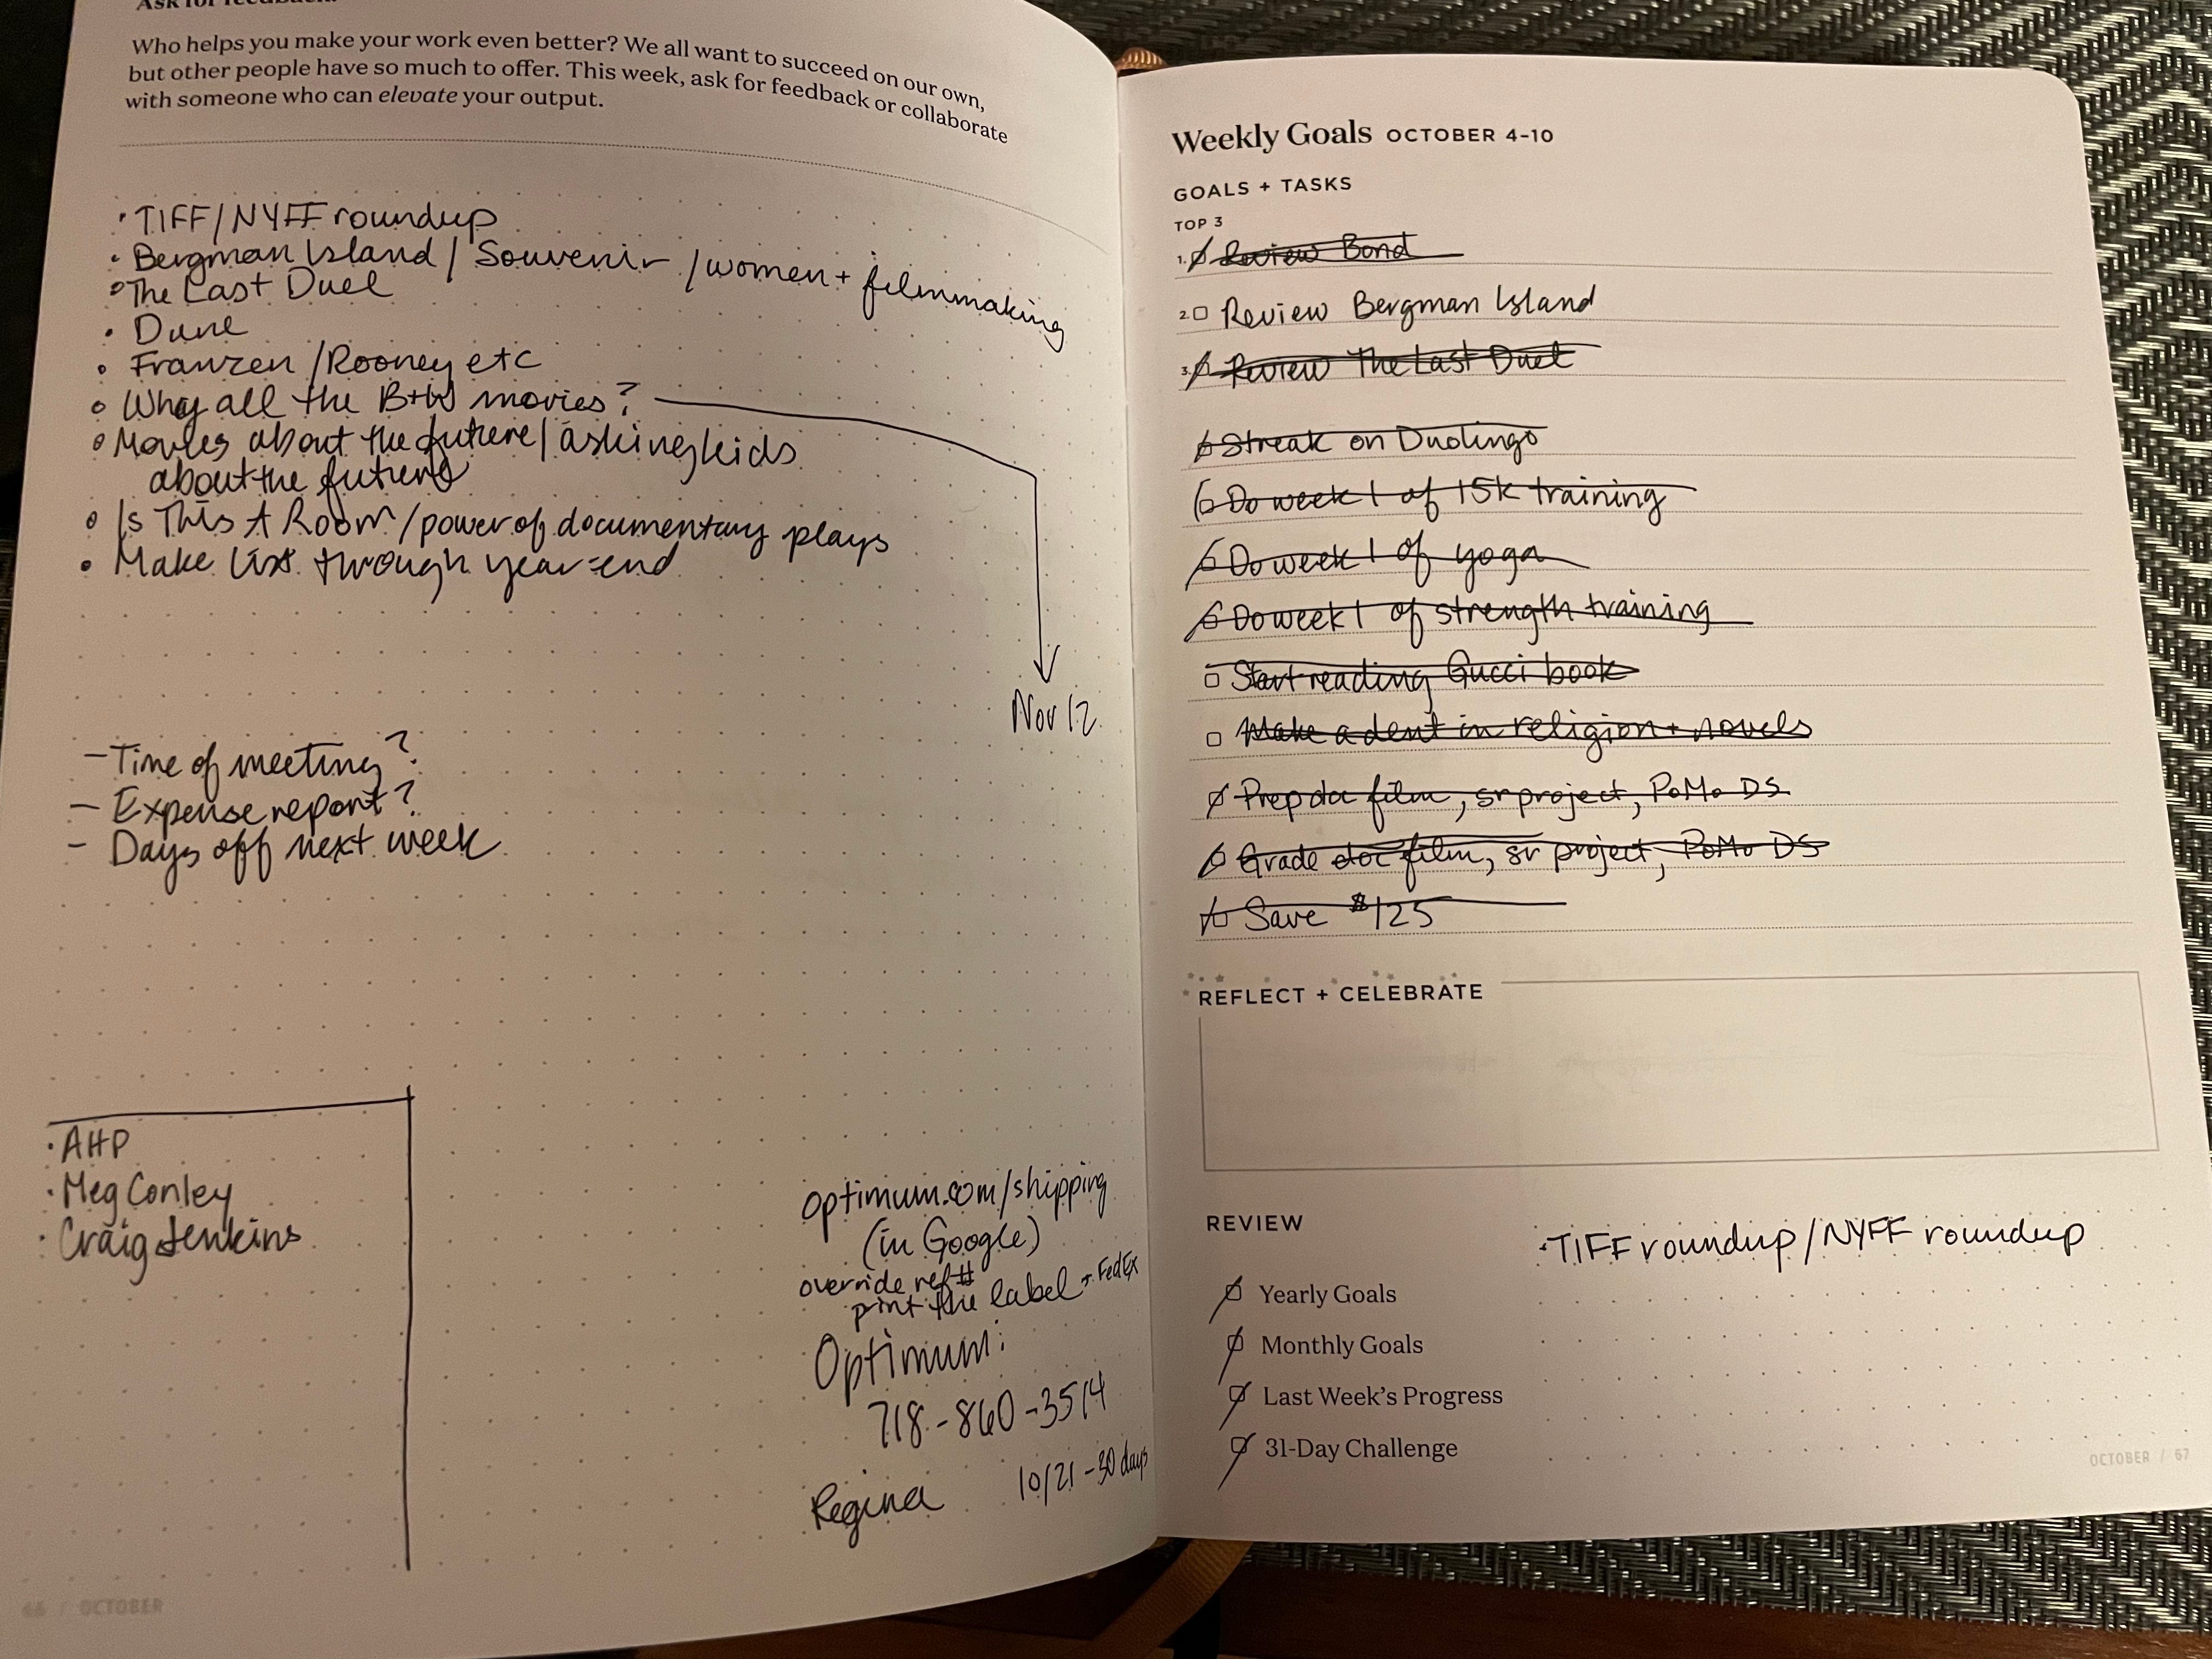 Ask for feedback.
Who helps you make your work even better? We all want to succeed on our own,
but other people have so much to offer. This week, ask for feedback or collaborate
with someone who can elevate your output.
• TIFF/NYFF roundup
• Bergman Island / Souvenir / women + filmmaking
• The Last Duel
• Dune
• Franzen / Rooney etc
• Why all the B+W movies?
• Movies about the future / asking kids
about the future
• Is This A Room / power of documentary plays
• Make list through year-end
Nov 12
- Time of meeting?
- Expense report?
- Days off next week
• AHP
• Meg Conley
• Craig Jenkins
optimum.com/shipping
(in Google)
override ref#
print the label → FedEx
Optimum:
718-860-3514
Regina 10/21 - 30 days
66 / OCTOBER
Weekly Goals OCTOBER 4-10
GOALS + TASKS
TOP 3
1. Review Bond
2. Review Bergman Island
3. Review The Last Duel
Streak on Duolingo
Do week 1 of 15k training
Do week 1 of yoga
Do week 1 of strength training
Start reading Gucci book
Make a dent in religion + novels
Prep doc film, sr project, PoMo DS
Grade doc film, sr project, PoMo DS
Save $125
REFLECT + CELEBRATE
REVIEW
• TIFF roundup / NYFF roundup
Yearly Goals
Monthly Goals
Last Week's Progress
31-Day Challenge
OCTOBER / 67